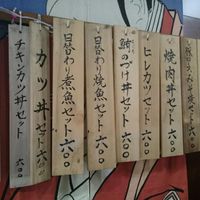 焼肉丼セット 六〇〇
ヒレカツ丼セット 六〇〇
鮪のづけ丼セット 六〇〇
日替わり焼魚セット 六〇〇
日替わり煮魚セット 六〇〇
カツ丼セット 六〇〇
チキンカツ丼セット 六〇〇